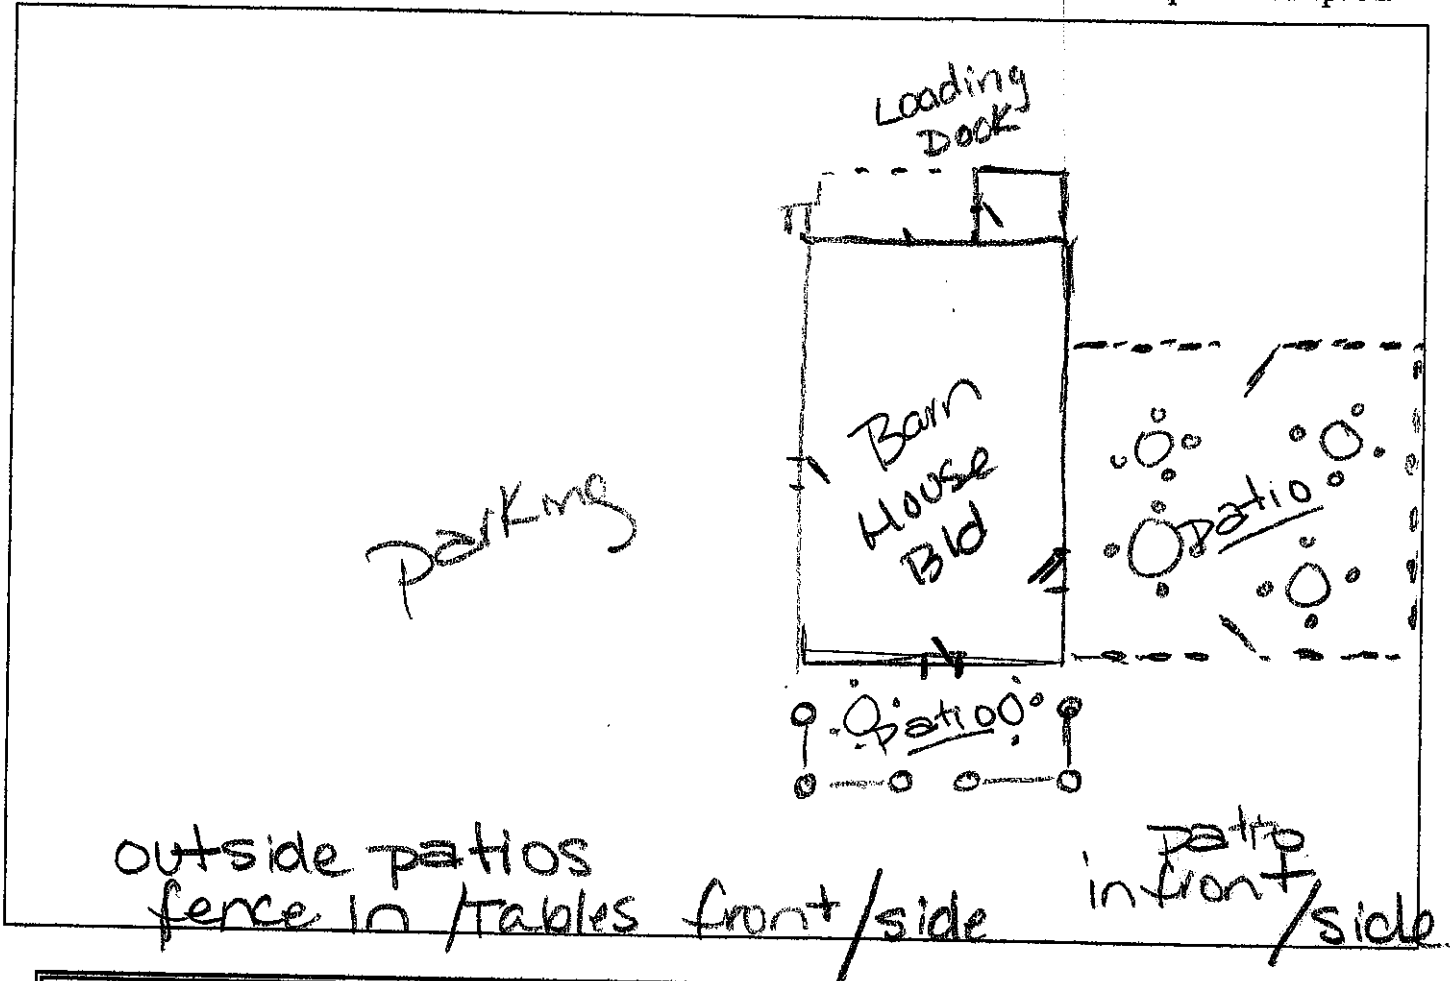 Loading
Dock
Barn
House
Bld
parking
patio
patio
outside patios
fence in / Tables front / side
patio
in front
/ side.